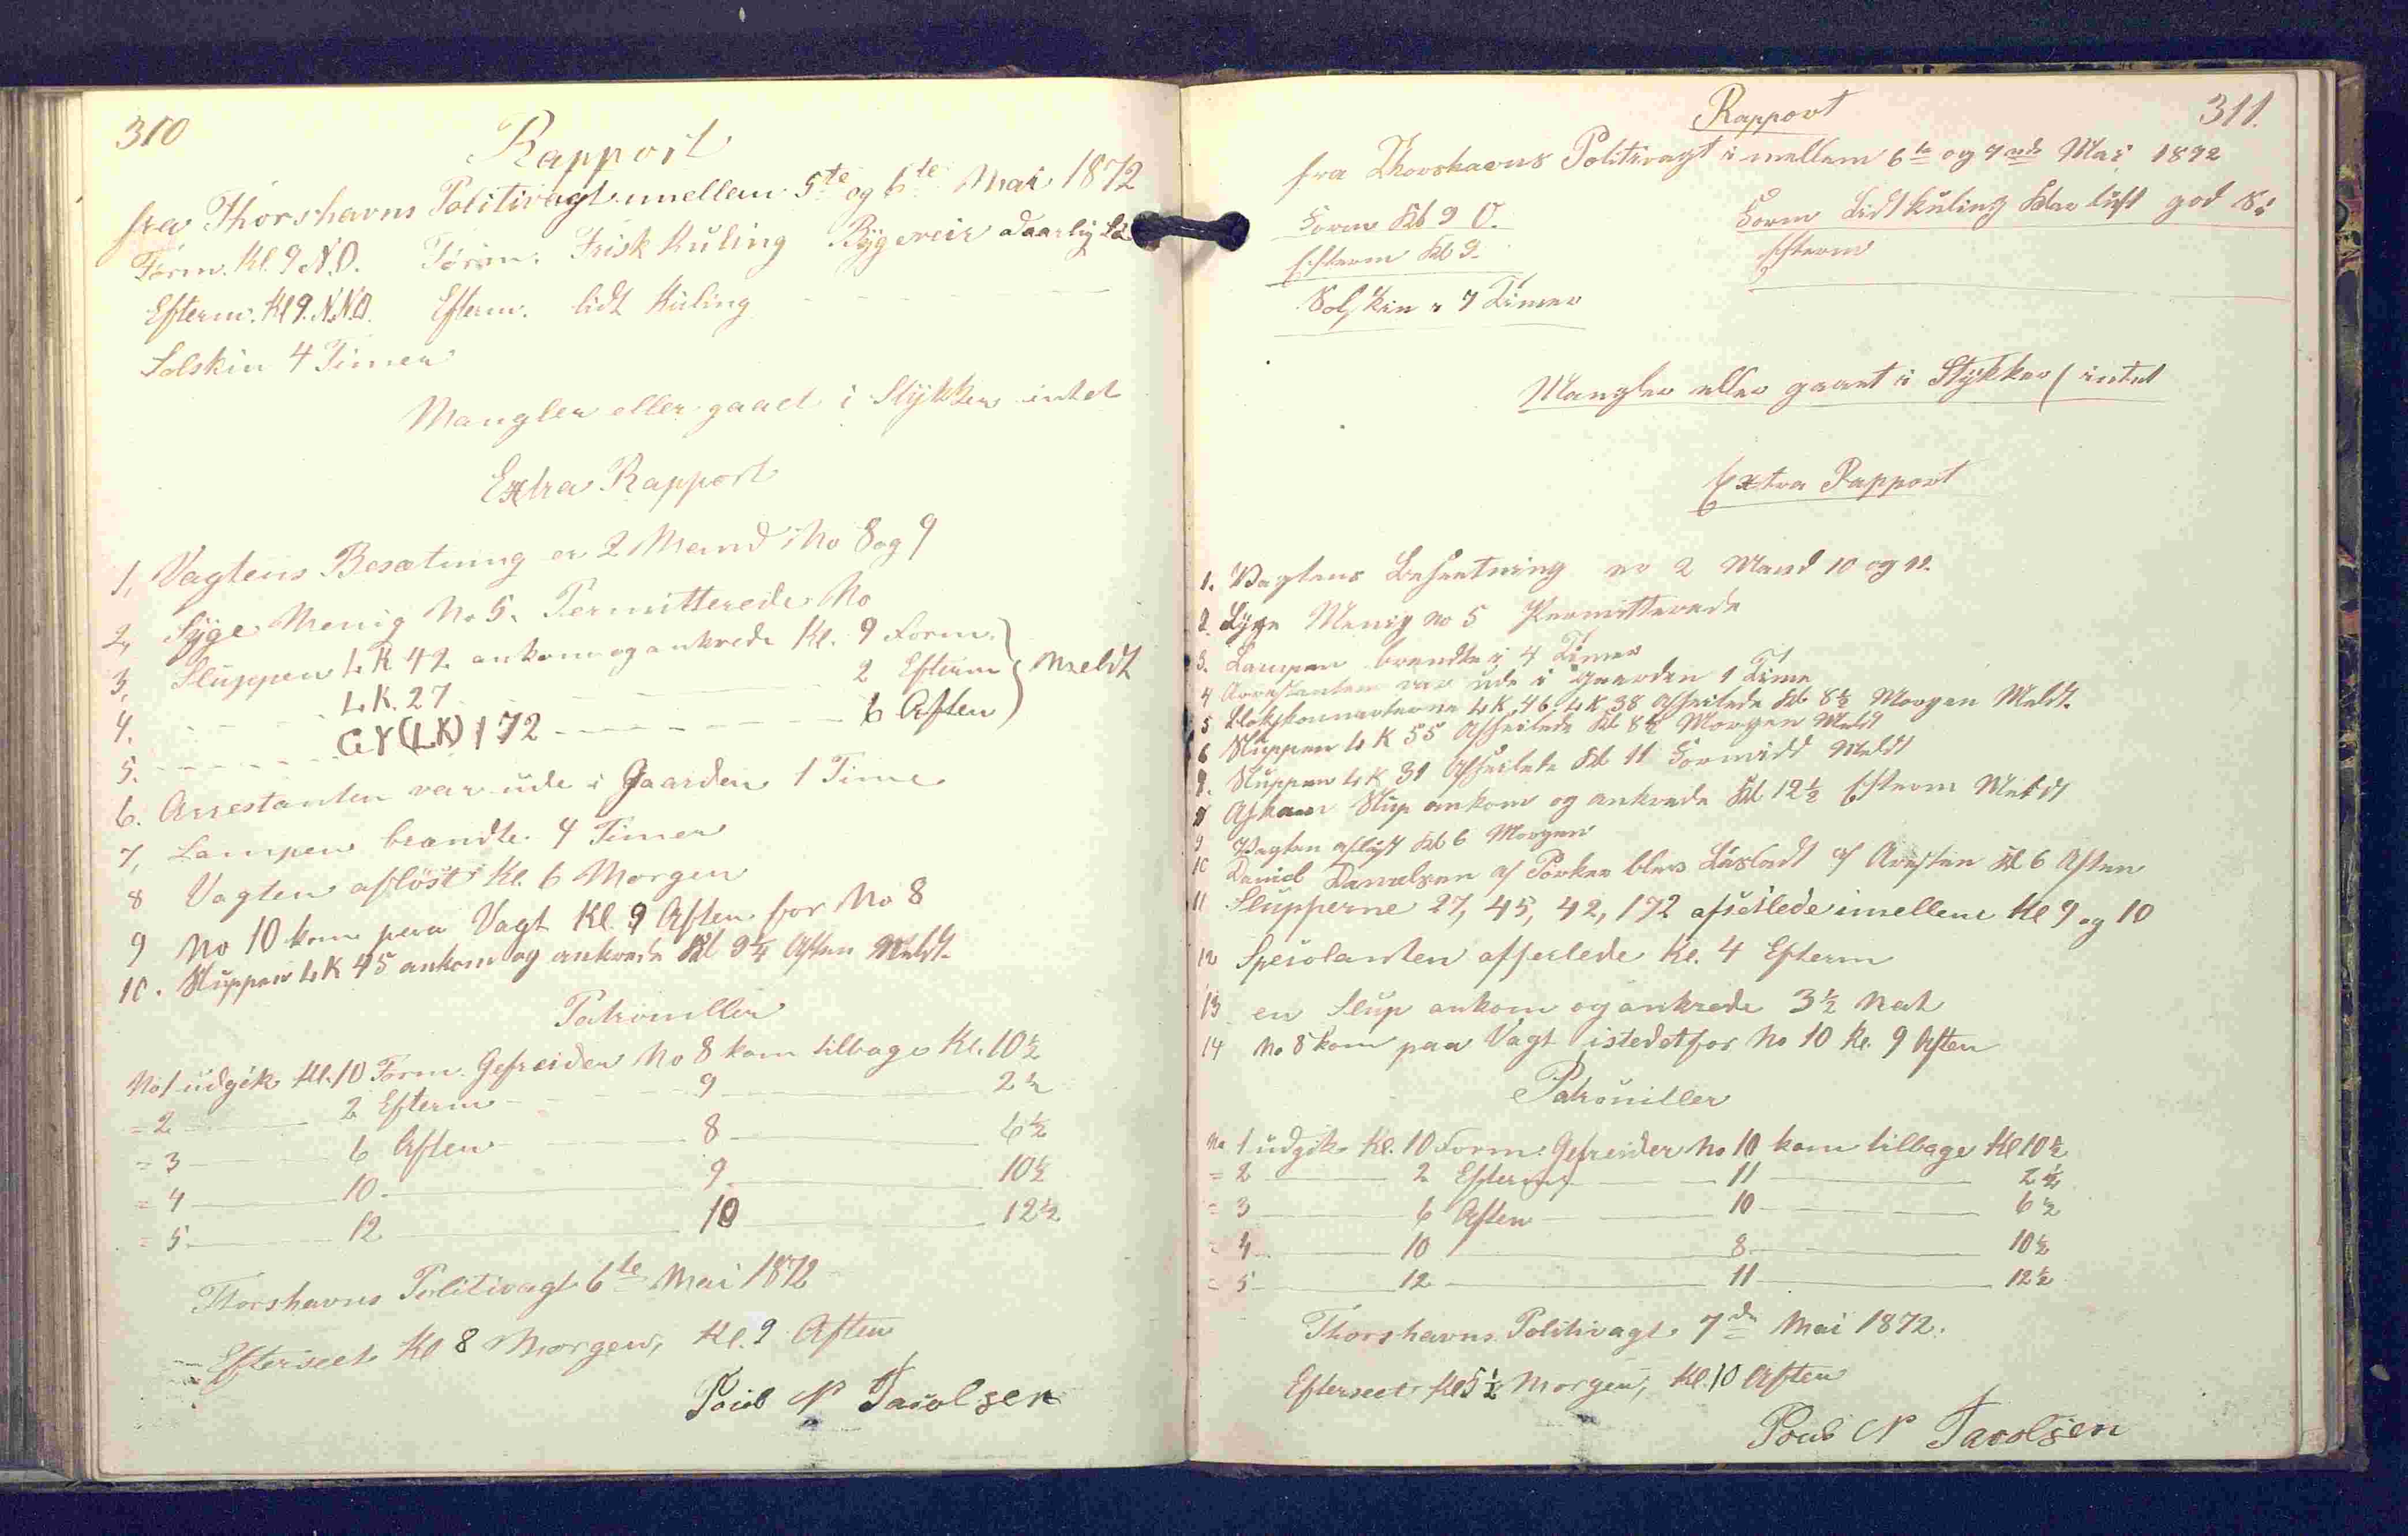 310
Rapport
fra Thorshavns Politivagt imellem 5te og 6te Mai 1872
Form. Kl. 9 N.O. Form. Frisk Kuling Bygeveir daarlig
Efterm. Kl 9. N.N.O. Efterm. lidt Kuling
Solskin 4 Timer
Mangler eller gaaet i Stykker intet
Extra Rapport
1, Vagtens Besætning er 2 Mand No 8 og 9
2, Syge Menig No 5. Permitterede No
3, Sluppen LK 42 ankom og ankrede Kl. 9 Form.
4. LK. 27 2 Efterm Meldt
5. GY(LK) 172 6 Aften
6. Arrestanten var ude i Gaarden 1 Time
7, Lampen brændte 4 Timer
8 Vagten afløst Kl. 6 Morgen
9 No 10 kom paa Vagt Kl. 9 Aften for No 8
10. Sluppen LK 45 ankom og ankrede Kl 9¼ Aften Meldt.
Patrouiller
No 1 udgik Kl. 10 Form. Gefreider No 8 kom tilbage Kl. 10½
= 2 2 Efterm 9 2½
= 3 6 Aften 8 6½
= 4 10 9 10½
= 5 12 10 12½
Thorshavns Politivagt 6te Mai 1872
Efterseet Kl 8 Morgen, Kl. 9 Aften
Poul N Jacobsen
311.
Rapport
fra Thorshavns Politivagt i mellem 6te og 7nde Mai 1872
Form Kl 9 O. Form Lidt kuling Klar luft god
Efterm Kl 9. Efterm
Solskin i 7 Timer
Mangler eller gaaet i Stykker ( intet
Extra Rapport
1. Vagtens Besætning er 2 Mand 10 og 11.
2. Syge Menig No 5 Permitterede
3. Lampen brændte i 4 Timer
4 Arrestanten var ude i Gaarden 1 Time
5 LK 46 LK 38 Afseilede Kl 8½ Morgen Meldt.
6 Sluppen LK 55 Afseilede Kl 8½ Morgen Meldt
7. Sluppen LK 31 Afseilede Kl 11 Formidd Meldt
8 Slup ankom og ankrede Kl 12½ Efterm Meldt
9 Vagten afløst Kl 6 Morgen
10 Daniel Danielsen af Porkere blev Løsladt af Aresten Kl 6 Aften
11 Slupperne 27, 45, 42, 172 afseilede imellem Kl 9 og 10
12 afseilede Kl. 4 Efterm
13 en Slup ankom og ankrede 3½ Nat
14 No 8 kom paa Vagt istedetfor No 10 Kl. 9 Aften
Patrouiller
No 1 udgik Kl. 10 Form. Gefreider No 10 kom tilbage Kl 10½
= 2 2 Efterm 11 2½
= 3 6 Aften 10 6½
= 4 10 8 10½
= 5 12 11 12½
Thorshavns Politivagt 7de Mai 1872.
Efterseet Kl 5½ Morgen, Kl. 10 Aften
Poul N Jacobsen